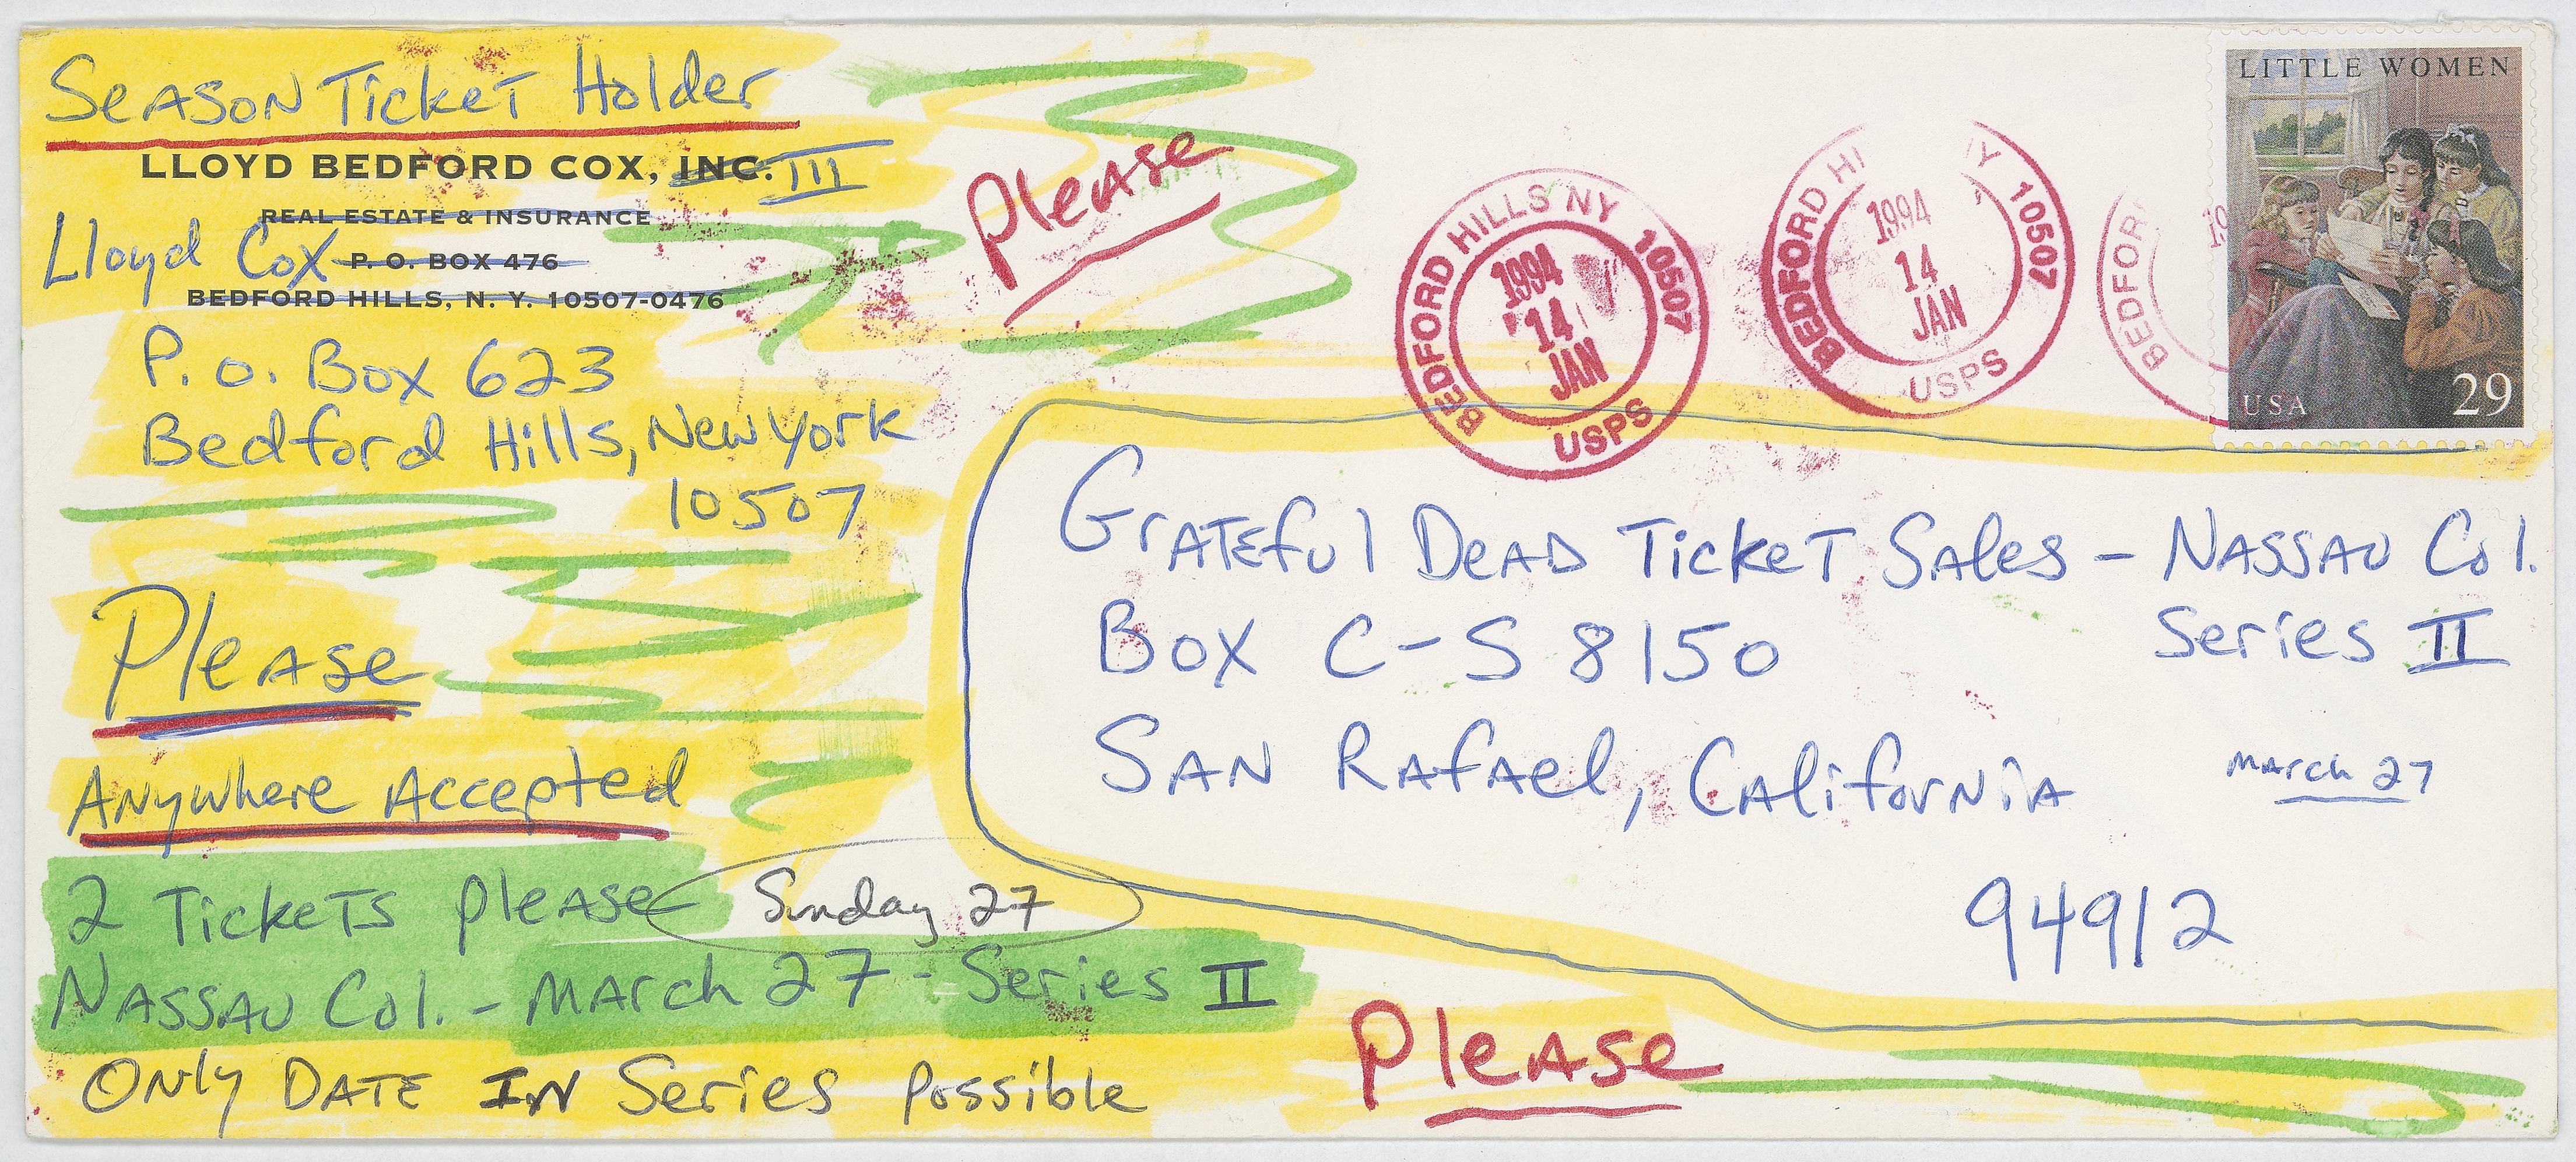 Season Ticket Holder
LLOYD BEDFORD COX, INC. III
REAL ESTATE & INSURANCE
Lloyd Cox
P. O. BOX 476
BEDFORD HILLS, N. Y. 10507-0476
P.O. Box 623
Bedford Hills, New York
10507
Please
Please
Anywhere Accepted
2 Tickets please Sunday 27
Nassau Col. - March 27 - Series II
Only Date in Series possible
Please
BEDFORD HILLS NY 10507
1994
14
JAN
USPS
BEDFORD HI Y 10507
1994
14
JAN
USPS
BEDFOR
19
LITTLE WOMEN
USA 29
Grateful Dead Ticket Sales - Nassau Col.
Box C-S 8150 Series II
San Rafael, California March 27
94912